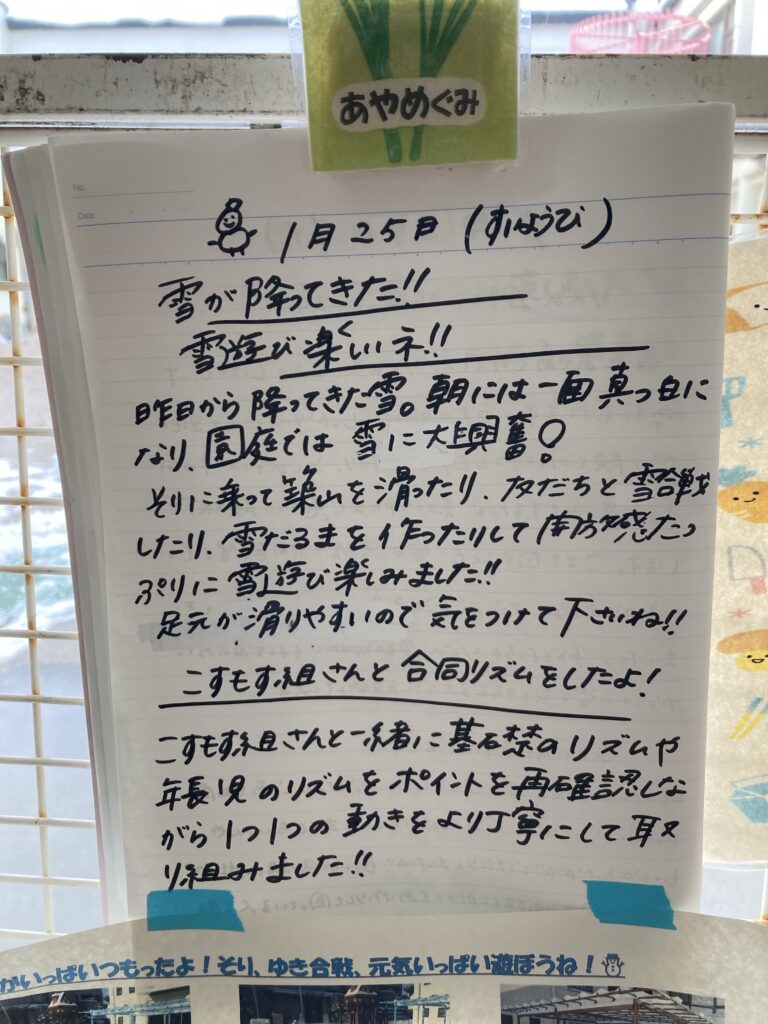 あやめぐみ
No.
Date
1月25日(すいようび)
雪が降ってきた!!
雪遊び楽しいネ!!
昨日から降ってきた雪。朝には一面真っ白に
なり、園庭では雪に大興奮!
そりに乗って築山を滑ったり、友だちと雪合戦
したり、雪だるまを作ったりして開放感たっ
ぷりに雪遊び楽しみました!!
足元が滑りやすいので気をつけて下さいね!!
こすもす組さんと合同リズムをしたよ!
こすもす組さんと一緒に基礎のリズムや
年長児のリズムをポイントを再確認しな
がら1つ1つの動きをより丁寧にして取
り組みました!!
がいっぱいつもったよ!そり、ゆき合戦、元気いっぱい遊ぼうね!